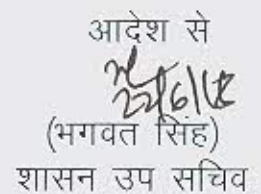 आदेश से
(भगवत सिंह)
शासन उप सचिव